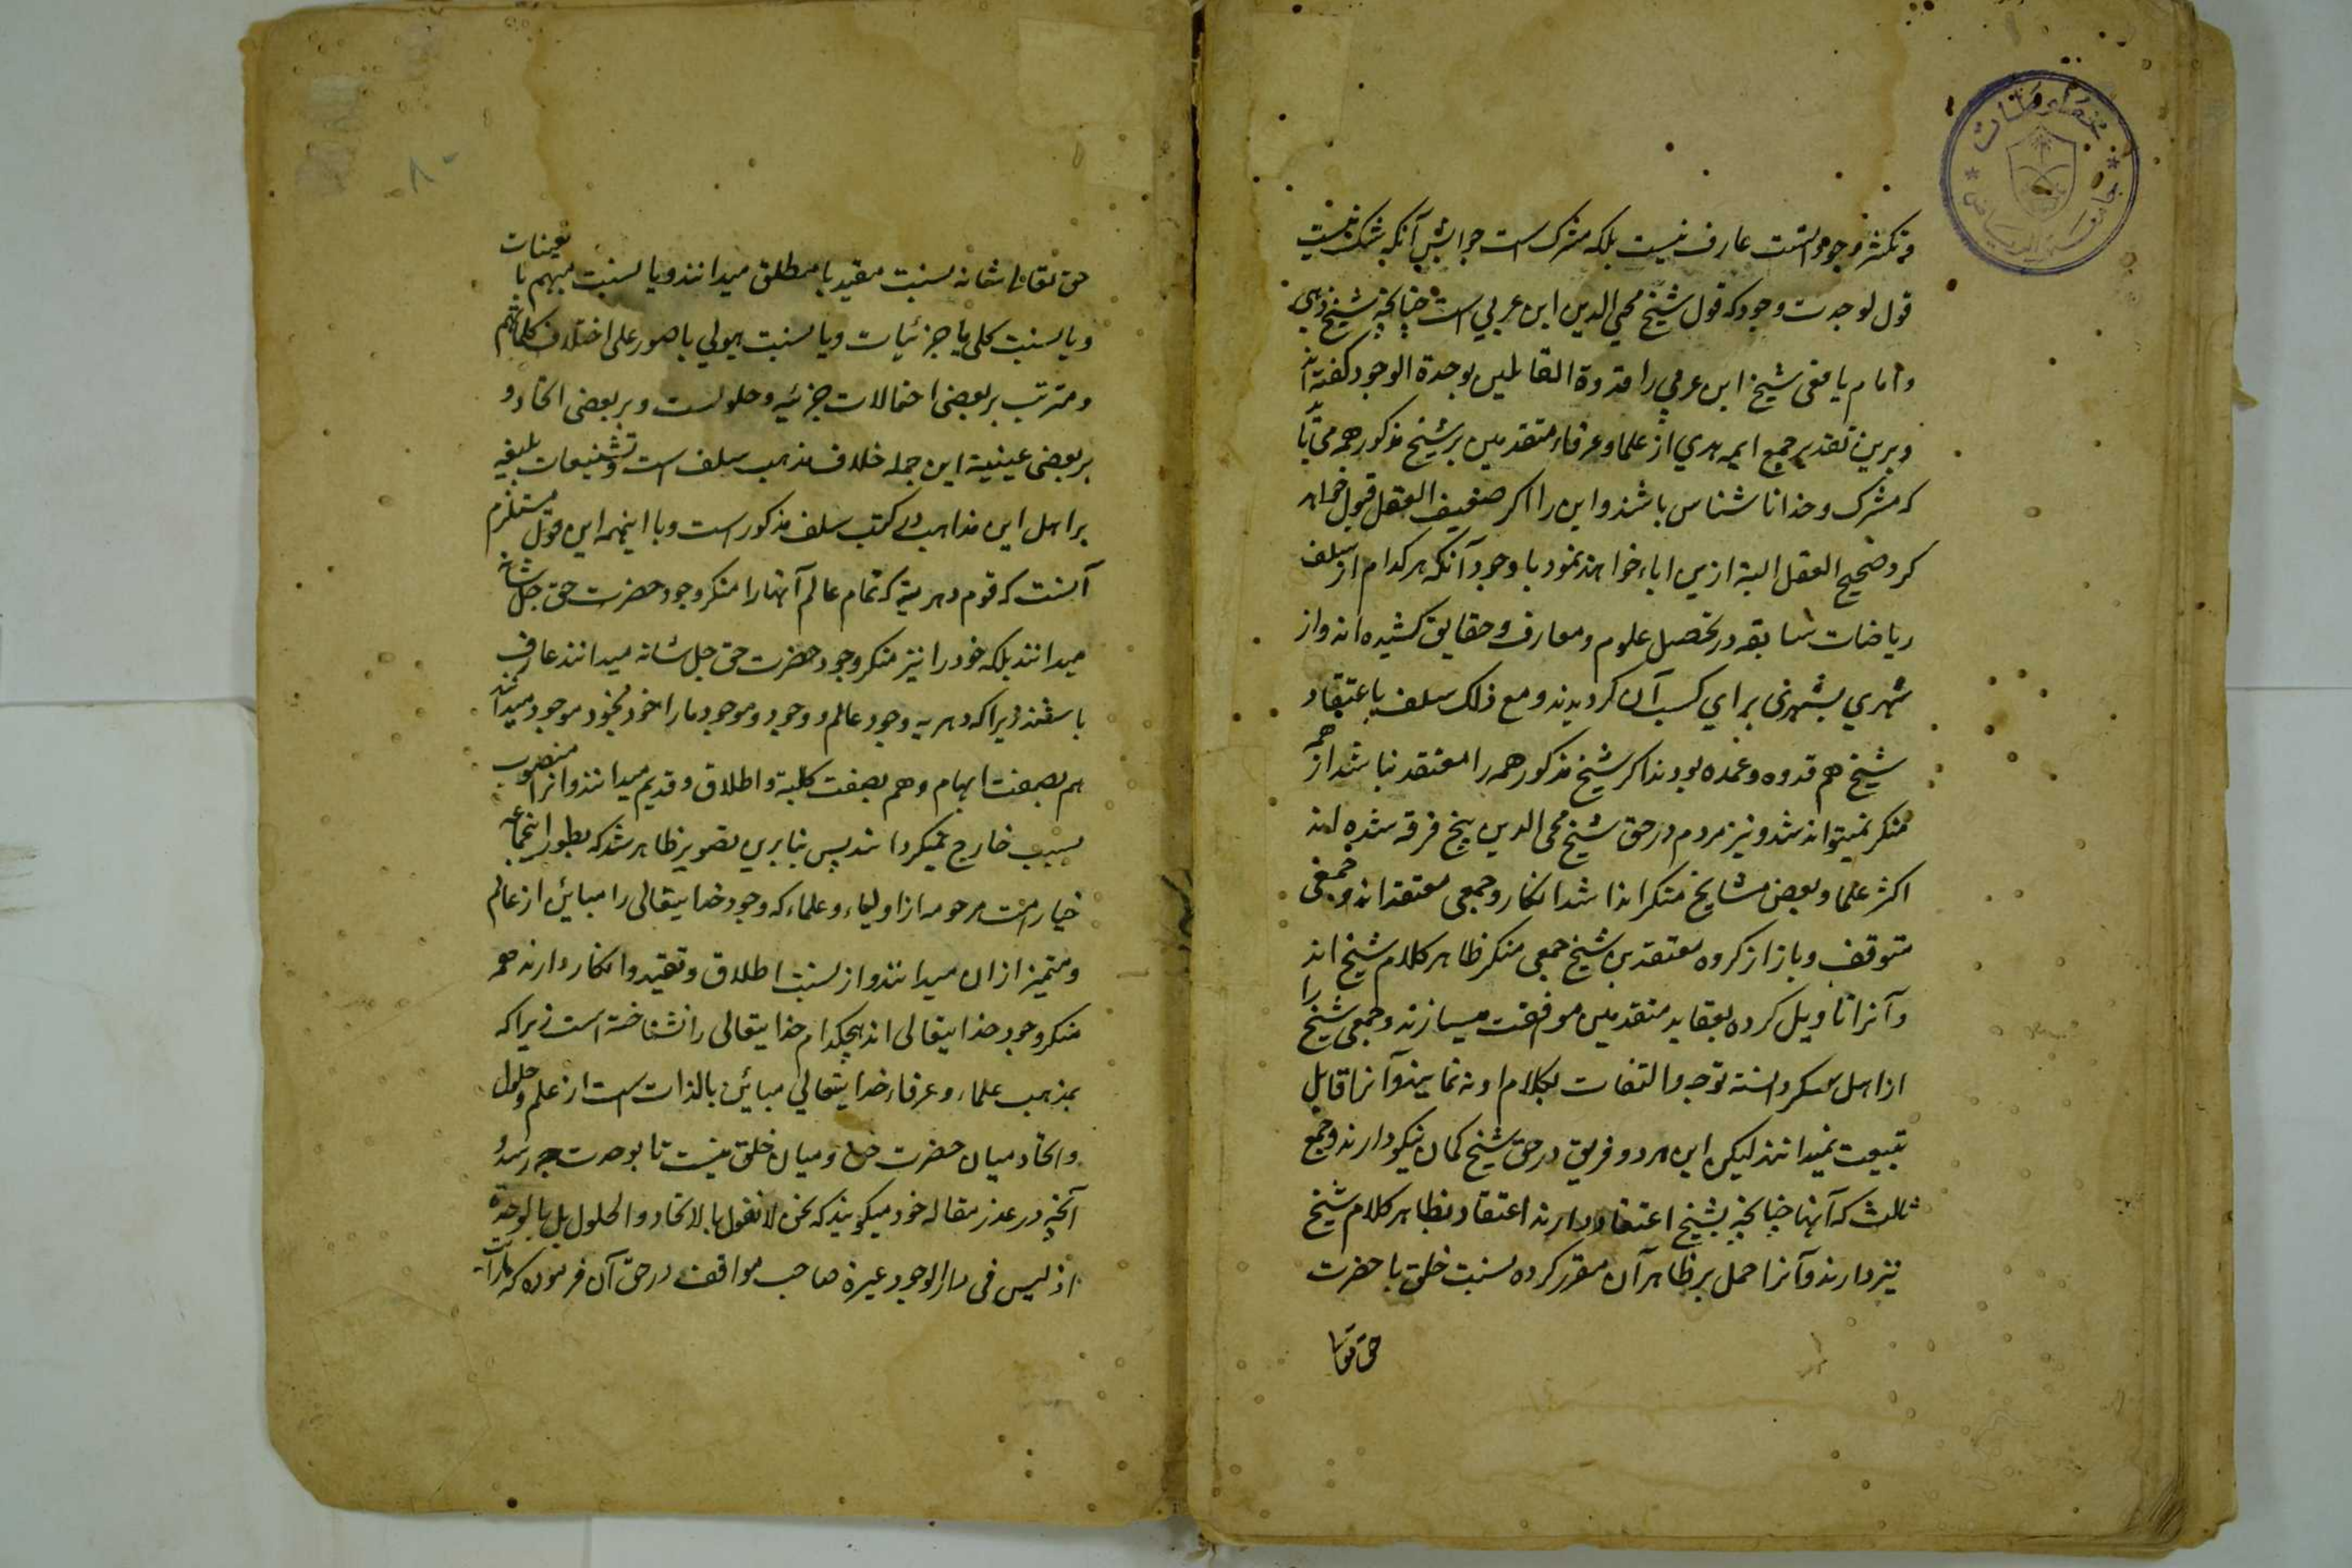 وتکثر وجود است عارف نیست بلکه مشرک است جوابش آنکه شک نیست
قول بوحدت وجود که قول شیخ محیی الدین ابن عربی است چنانچه شیخ ذهبی
وامام یافعی شیخ ابن عربی را قدوة القایلین بوحدة الوجود گفته اند
وبرین تقدیر جمیع ایمه هدی از علما وعرفاء متقدمین بر شیخ مذکور همه می باید
که مشرک وخدا ناشناس باشند واین را اکر ضعیف العقل قبول خواهد
کرد صحیح العقل البته ازین اباء خواهند نمود با وجود آنکه هر کدام از سلف
ریاضات شاقه در تحصیل علوم ومعارف وحقایق کشیده اند واز
شهری بشهری برای کسب آن کردیدند ومع ذلک سلف باعتقاد
شیخ هم قدوه وعمده بودند اکر شیخ مذکور همه را معتقد نباشد از همه
منکر نمیتواند شد ونیز مردم در حق شیخ محی الدین پنج فرقه شده اند
اکثر علما وبعض مشایخ منکر اند اشد انکار وجمعی معتقد اند وجمعی
متوقف وباز از کروه معتقدین شیخ جمعی منکر ظاهر کلام شیخ اند
وآنرا تاویل کرده بعقاید متقدمین موافقت میسازند وجمعی شیخ را
از اهل سکر دانسته توجه والتفات بکلام او نه نمایند وآنرا قابل
تبیعت نمیدانند لیکن این هر دو فریق در حق شیخ کمان نیکو دارند وجمع
ثالث که آنها چنانچه بشیخ اعتقاد دارند اعتقاد بظاهر کلام شیخ
نیز دارند وآنرا حمل بر ظاهر آن مقرر کرده نسبت خلق با حضرت
حق تعالی
حق تعالی شانه نسبت مقید با مطلق میدانند ویا نسبت مبهم با تعینات
ویا نسبت کلی با جزئیات ویا نسبت هیولی با صور علی اختلاف کلماتهم
ومترتب بر بعضی احتمالات جزئیه وحلولست وبر بعضی اتحاد و
بر بعضی عینیة این جمله خلاف مذهب سلف است وتشنیعات بلیغه
بر اهل این مذاهب در کتب سلف مذکور است وبا اینهمه این قول مستلزم
آنست که قوم دهریه که تمام عالم آنها را منکر وجود حضرت حق جل شانه
میدانند بلکه خود را نیز منکر وجود حضرت حق جل شانه میدانند عارف
باشند زیرا که دهریه وجود عالم ووجود وموجود ما را خود بخود موجود میدانند
هم بصفت ابهام وهم بصفت کلیة واطلاق وقدیم میدانند وانرا منصوب
بسبب خارج نمیکردانند پس بنابرین تصویر ظاهر شد که بطور اینجماعه
خیار امت مرحومه از اولیاء وعلماء که وجود خدایتعالی را مبائن از عالم
ومتمیز ازان میدانند واز نسبت اطلاق وتقیید وانکار دارند همه
منکر وجود خدایتعالی اند هیچکدام خدایتعالی را نشناخته است زیرا که
بمذهب علماء وعرفاء خدایتعالی مبائن بالذات است از علم وحلول
واتحاد میان حضرت حق ومیان خلق نیست تا بوحدت چه رسد و
آنچه در عذر مقاله خود میکویند که نحن لا نقول بالاتحاد والحلول بل بالوحدة
اذ لیس فی دار الوجود غیره صاحب مواقف در حق آن فرموده که
مخطوطات
جامعة الریاض
٨٠